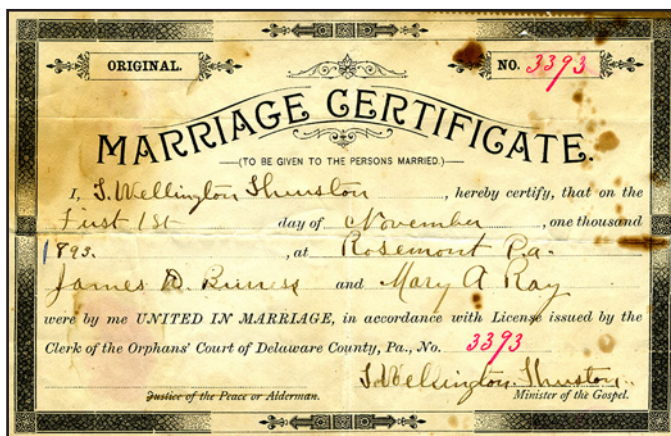 ORIGINAL.
NO. 3393
MARRIAGE CERTIFICATE.
(TO BE GIVEN TO THE PERSONS MARRIED.)
I, T. Wellington Thurston, hereby certify, that on the
First 1st day of November, one thousand
1893., at Rosemont Pa.
James D. and Mary A Ray
were by me UNITED IN MARRIAGE, in accordance with License issued by the
Clerk of the Orphans' Court of Delaware County, Pa., No. 3393
T. Wellington Thurston.
Justice of the Peace or Alderman. Minister of the Gospel.